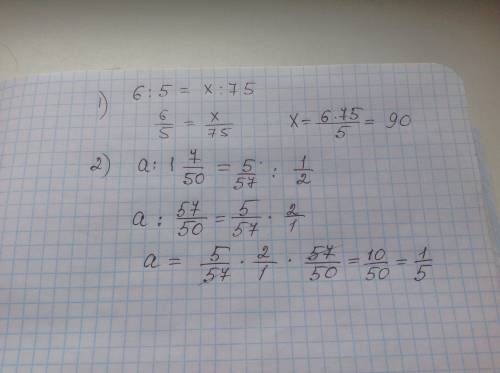 1) 6 : 5 = x : 75
6/5 = x/75   x = 6·75/5 = 90
2) a : 1 7/50 = 5/57 : 1/2
a : 57/50 = 5/57 · 2/1
a = 5/57 · 2/1 · 57/50 = 10/50 = 1/5